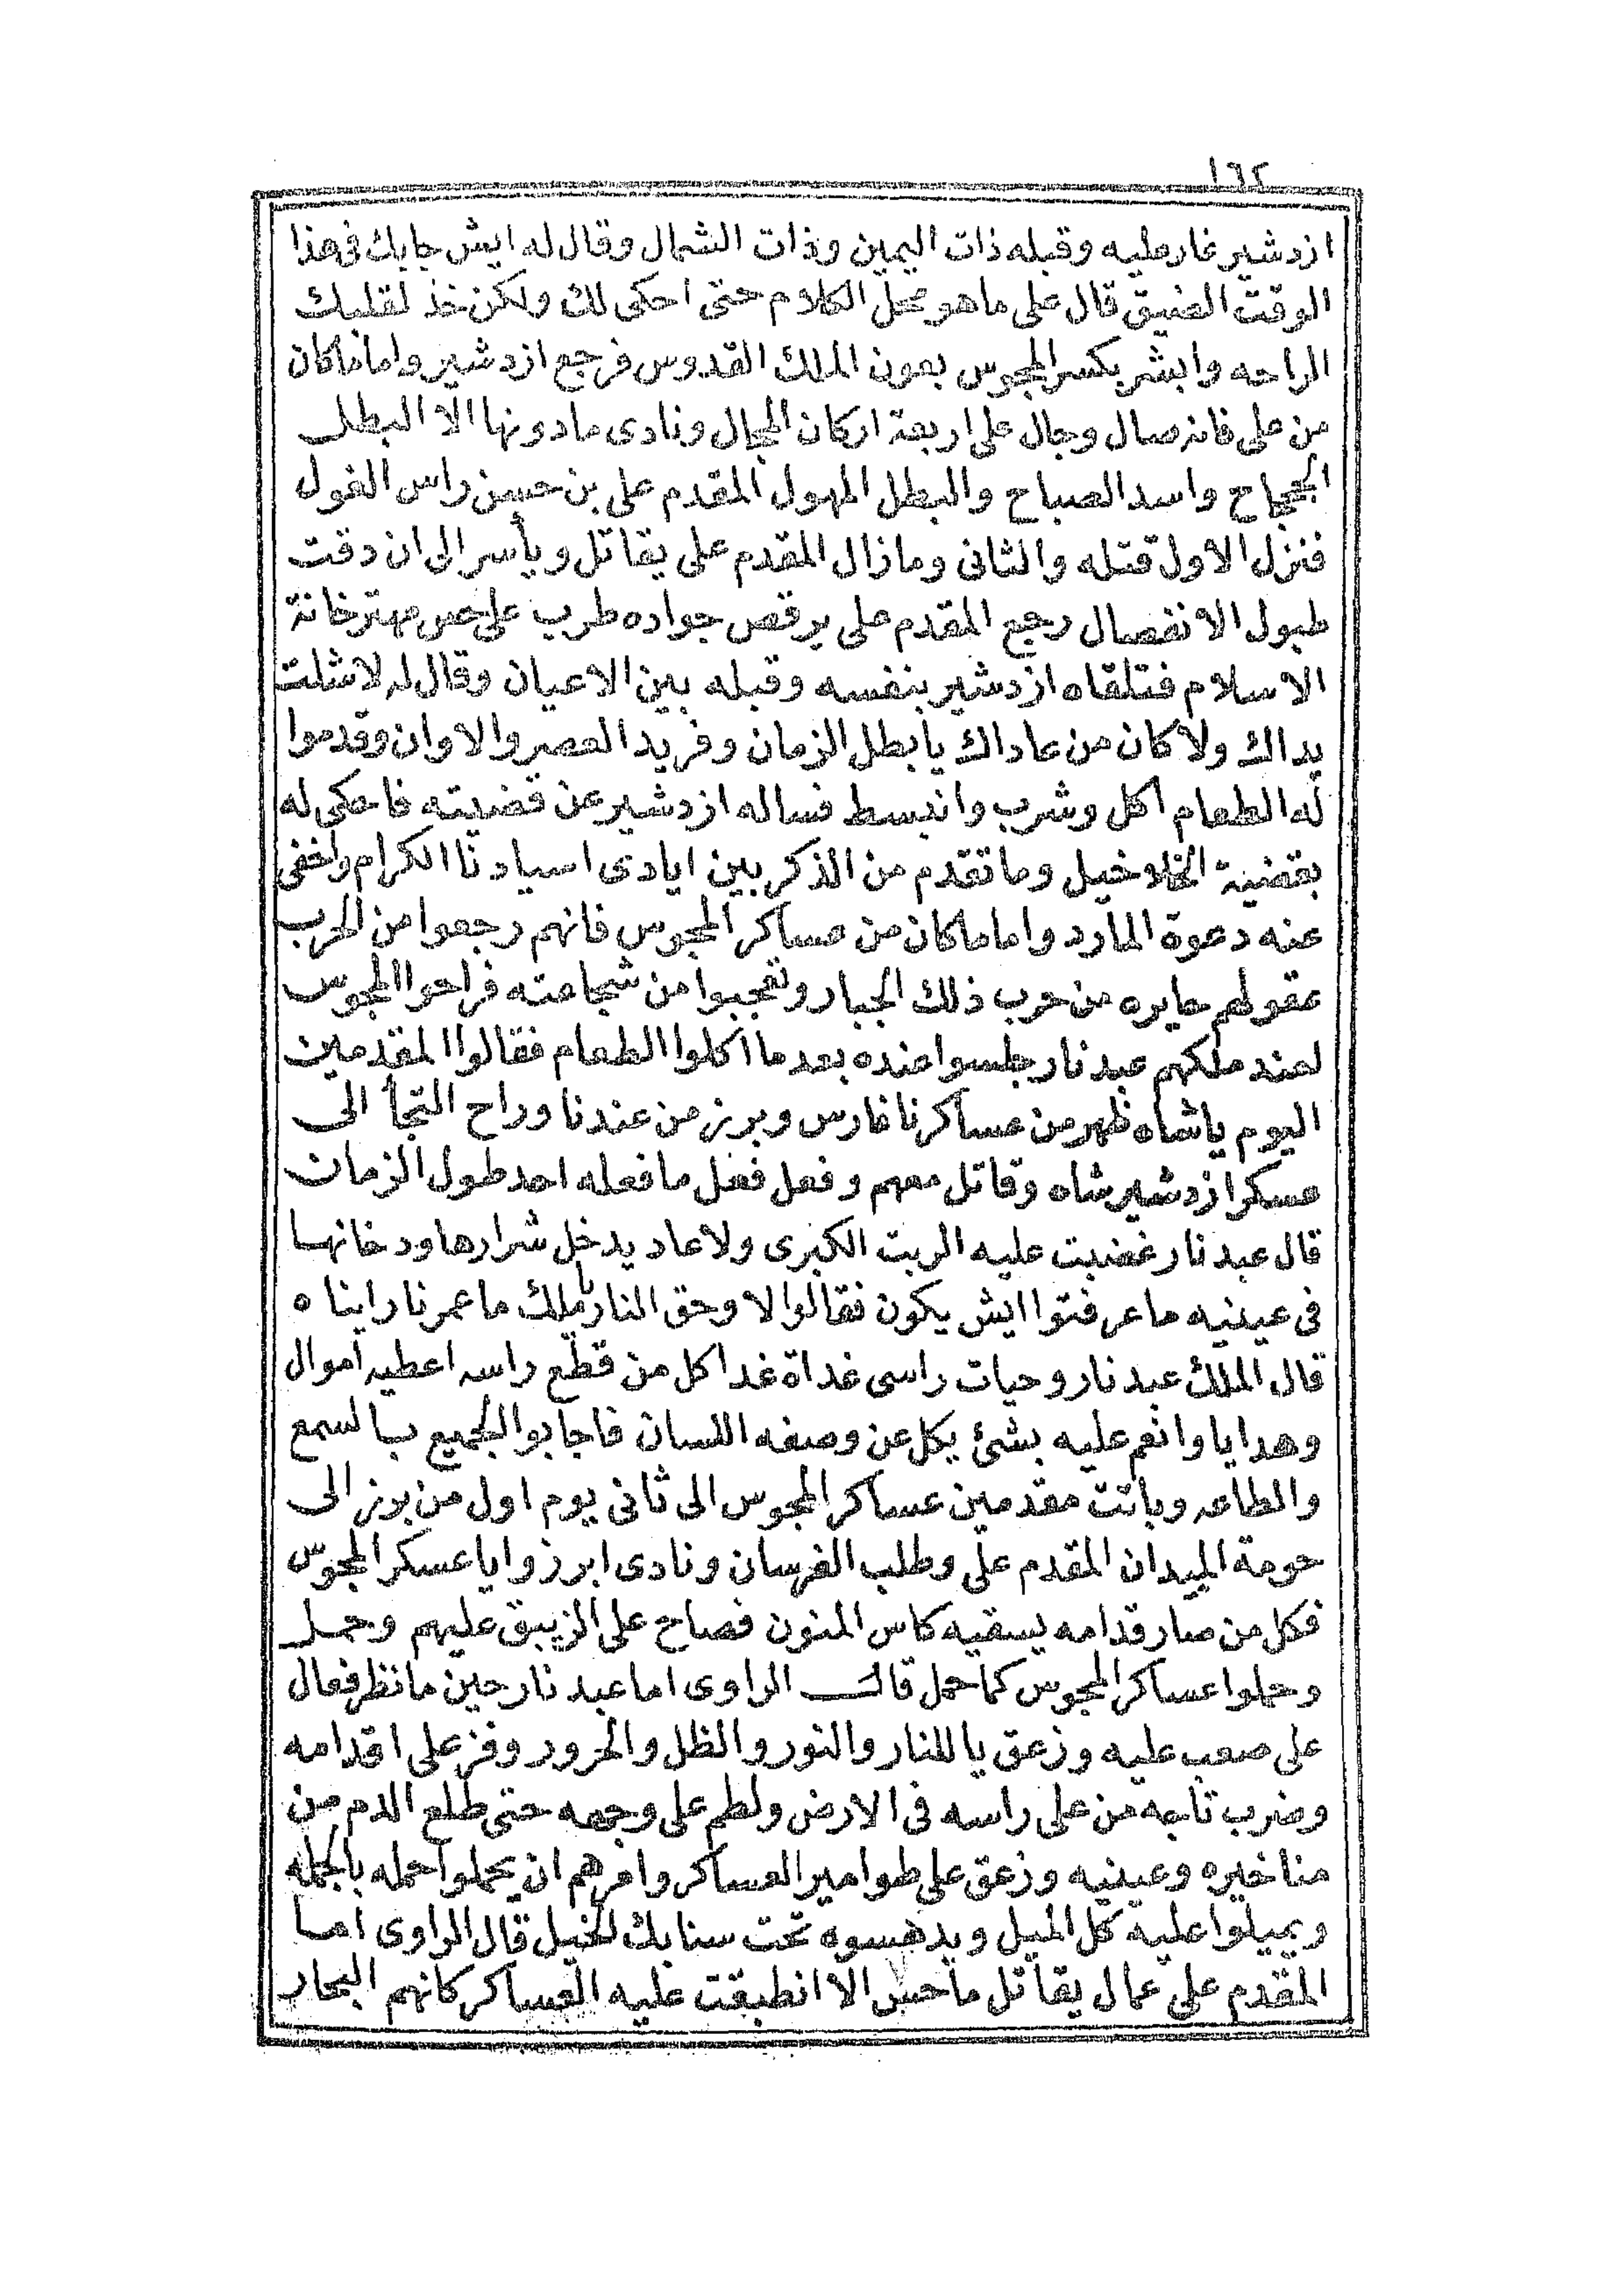 ١٦٢
ازدشير غار عليه وقبله ذات اليمين وذات الشمال وقال له ايش جابك فى هذا
الوقت الضيق قال على ما هو محل الكلام حتى احكى لك ولكن خذ لقلبك
الراحه وابشر بكسر المجوس بعون الملك القدوس فرجع ازدشير واما ما كان
من على فانه صال وجال على اربعة اركان المجال ونادى ما دونها الا البطل
الججاح واسد الصباح والبطل المهول المقدم على بن حسن راس الغول
فنزل الاول قتله والثانى وما زال المقدم على يقاتل ويأسر الى ان دقت
طبول الانفصال رجع المقدم على يرقص جواده طرب على حس مهترخانة
الاسلام فتلقاه ازدشير بنفسه وقبله بين الاعيان وقال له لا شلت
يداك ولا كان من عاداك يا بطل الزمان وفريد العصر والاوان وقدموا
له الطعام اكل وشرب وانبسط فساله ازدشير عن قضيته فاحكى له
بقضية الخلاخيل وما تقدم من الذكر بين ايادى اسيادنا الكرام واخفى
عنه دعوة المارد واما ما كان من عساكر المجوس فانهم رجعوا من الحرب
عقولهم حايره من حرب ذلك الجبار وتعجبوا من شجاعته فراحوا المجوس
لعند ملكهم عبد نار جلسوا عنده بعد ما اكلوا الطعام فقالوا المقدمين
اليوم ياشاه ظهر من عساكرنا فارس وبرز من عندنا وراح التجأ الى
عسكر ازدشير شاه وقاتل معهم وفعل فعل ما فعله احد طول الزمان
قال عبد نار غضبت عليه الربت الكبرى ولا عاد يدخل شرارها ودخانها
فى عينيه ما عرفتوا ايش يكون فقالوا لا وحق النار يا ملك ما عمرنا رايناه
قال الملك عبد نار وحيات راسى غداة غدا كل من قطع راسه اعطيه اموال
وهدايا وانعم عليه بشئ يكل عن وصفه اللسان فاجابوا الجميع بالسمع
والطاعه وباتت مقدمين عساكر المجوس الى ثانى يوم اول من برز الى
حومة الميدان المقدم على وطلب الفرسان ونادى ابرزوا يا عسكر المجوس
فكل من صار قدامه يسقيه كاس المنون فصاح على الزيبق عليهم وحمل
وحملوا عساكر المجوس كما حمل قال الراوى اما عبد نار حين ما نظر فعال
على صعب عليه وزعق يا للنار والنور والظل والحرور وفز على اقدامه
وضرب تاجه من على راسه فى الارض ولطم على وجهه حتى طلع الدم من
مناخيره وعينيه وزعق على طوامير العساكر وامرهم ان يحملوا حمله بالجمله
ويميلوا عليه كل الميل ويدهسوه تحت سنابك الخيل قال الراوى اما
المقدم على عمال يقاتل ما حس الا انطبقت عليه العساكر كانهم البحار